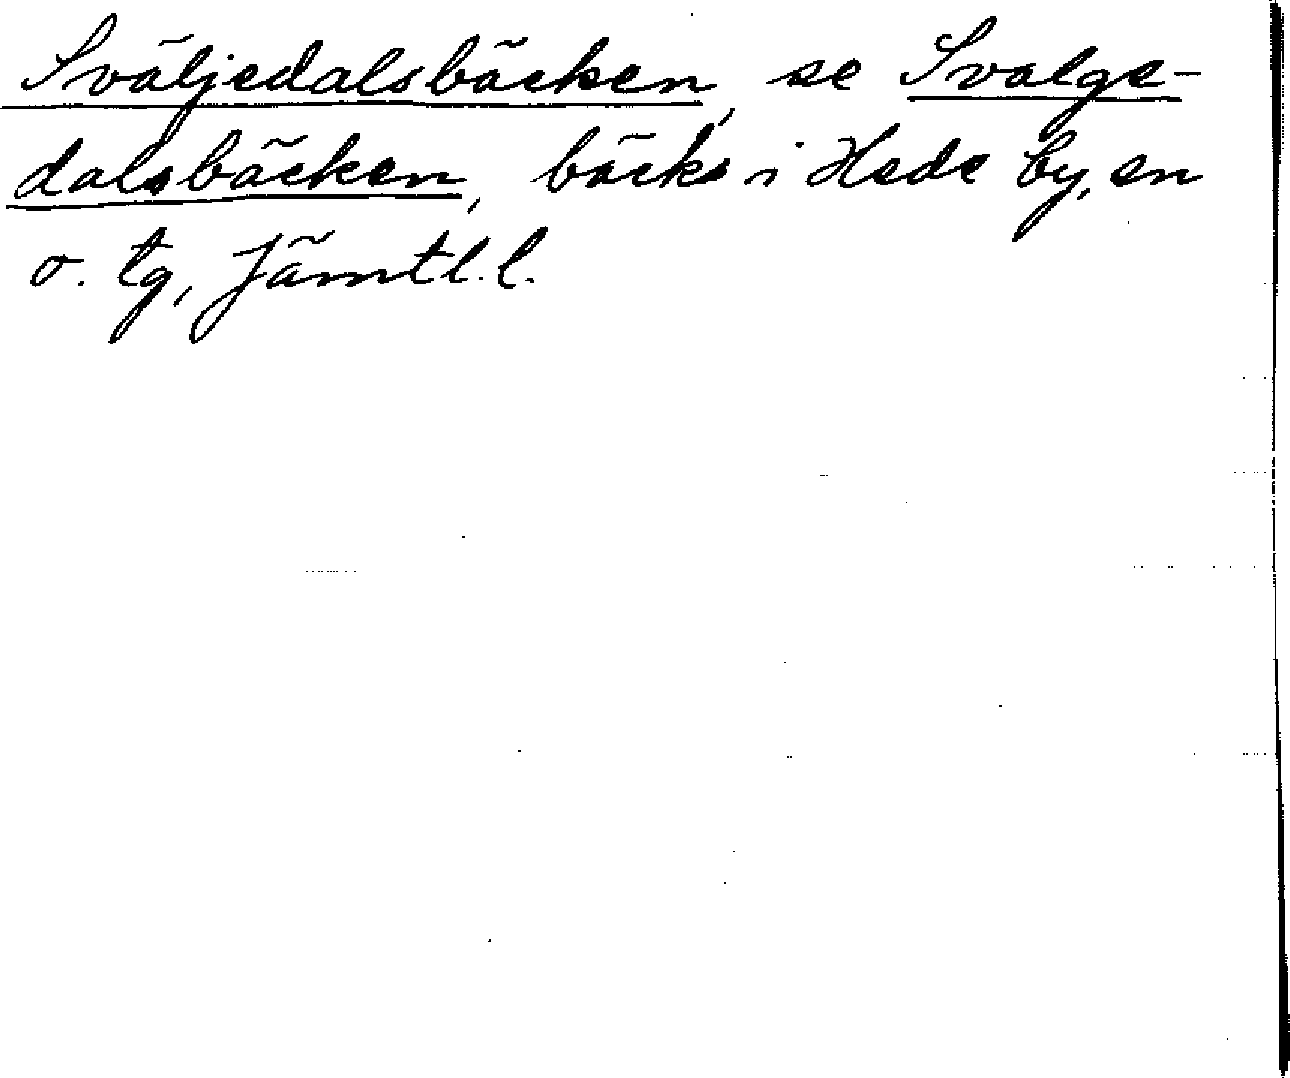 Sväljedalsbäcken, se Svalge-
dalsbäcken, bäck i Hede by, sn
o. tg, Jämtl. l.